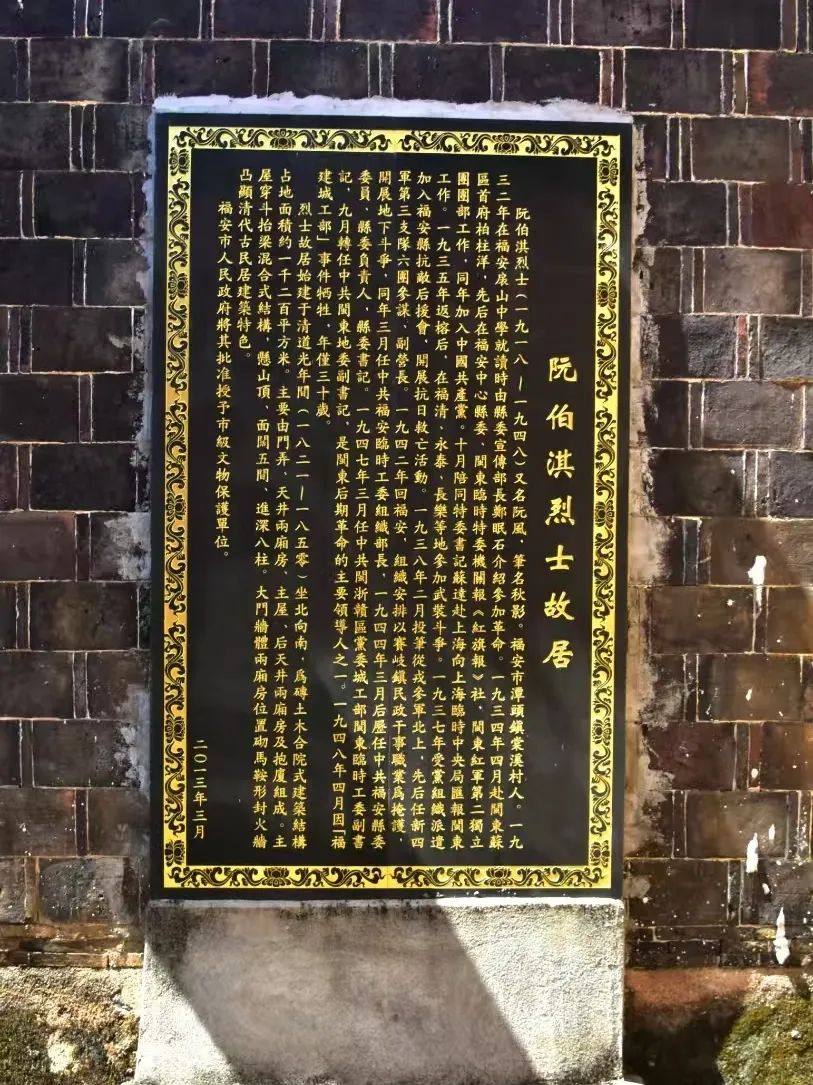 阮伯淇烈士故居
阮伯淇烈士（一九一八—一九四八）又名阮風，筆名秋影。福安市潭頭鎮棠溪村人。一九
三二年在福安扆山中學就讀時由縣委宣傳部長鄭眠石介紹參加革命。一九三四年四月赴閩東蘇
區首府柏柱洋，先后在福安中心縣委、閩東臨時特委機關報《紅旗報》社，閩東紅軍第二獨立
團團部工作，同年加入中國共產黨。十月陪同特委書記蘇達赴上海向上海臨時中央局匯報閩東
工作。一九三五年返榕后，在福清、永泰、長樂等地參加武裝斗爭。一九三七年受黨組織派遣
加入福安縣抗敵后援會，開展抗日救亡活動。一九三八年二月投筆從戎參軍北上，先后任新四
軍第三支隊六團參謀、副營長。一九四二年回福安，組織安排以賽岐鎮民政干事職業爲掩護，
開展地下斗爭，同年三月任中共福安臨時工委組織部長，一九四四年三月后歷任中共福安縣委
委員、縣委負責人、縣委書記。一九四七年三月任中共閩浙贛區黨委城工部閩東臨時工委副書
記，九月轉任中共閩東地委副書記，是閩東后期革命的主要領導人之一。一九四八年四月因「福
建城工部」事件牺牲，年僅三十歲。
烈士故居始建于清道光年間（一八二一—一八五零）坐北向南，爲磚土木合院式建築結構
占地面積約一千二百平方米。主要由門弄、天井兩廂房、主屋、后天井兩廂房及抱廈組成。主
屋穿斗抬梁混合式結構，懸山頂、面闊五間、進深八柱。大門牆體兩廂房位置砌馬鞍形封火牆
凸顯清代古民居建築特色。
福安市人民政府將其批准授予市級文物保護單位。
二〇一三年三月